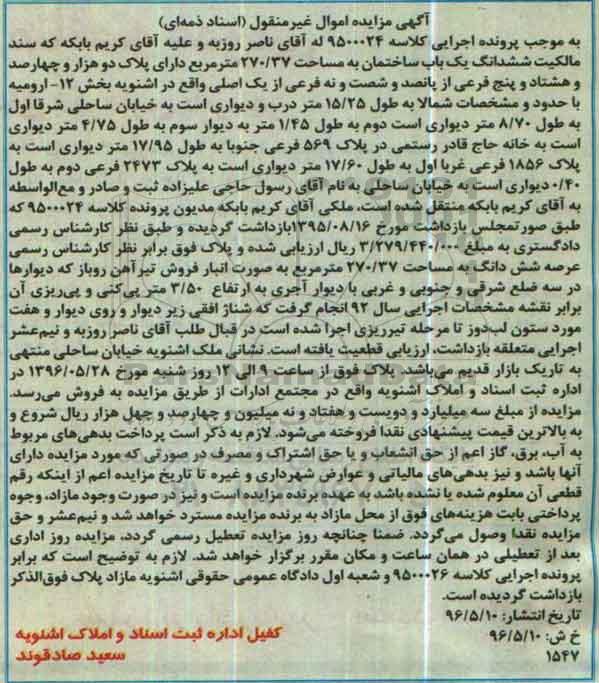 آگهی مزایده اموال غیرمنقول (اسناد ذمه‌ای)
به موجب پرونده اجرایی کلاسه ۹۵۰۰۰۲۴ له آقای ناصر روزبه و علیه آقای کریم بابکه که سند
مالکیت ششدانگ یک باب ساختمان به مساحت ۲۷۰/۳۷ مترمربع دارای پلاک دو هزار و چهارصد
و هشتاد و پنج فرعی از پانصد و شصت و نه فرعی از یک اصلی واقع در اشنویه بخش ۱۲- ارومیه
با حدود و مشخصات شمالا به طول ۱۵/۲۵ متر درب و دیواری است به خیابان ساحلی شرقا اول
به طول ۸/۷۰ متر دیواری است دوم به طول ۱/۴۵ متر به دیوار سوم به طول ۴/۷۵ متر دیواری
است به خانه حاج قادر رستمی در پلاک ۵۶۹ فرعی جنوبا به طول ۱۷/۹۵ متر دیواری است به
پلاک ۱۸۵۶ فرعی غربا اول به طول ۱۷/۶۰ متر دیواری است به پلاک ۲۴۷۳ فرعی دوم به طول
۰/۴۰ دیواری است به خیابان ساحلی به نام آقای رسول حاجی علیزاده ثبت و صادر و مع‌الواسطه
به آقای کریم بابکه منتقل شده است، ملکی آقای کریم بابکه مدیون پرونده کلاسه ۹۵۰۰۰۲۴ که
طبق صورتمجلس بازداشت مورخ ۱۳۹۵/۰۸/۱۶بازداشت گردیده و طبق نظر کارشناس رسمی
دادگستری به مبلغ ۳/۲۷۹/۴۴۰/۰۰۰ ریال ارزیابی شده و پلاک فوق برابر نظر کارشناس رسمی
عرصه شش دانگ به مساحت ۲۷۰/۳۷ مترمربع به صورت انبار فروش تیرآهن روباز که دیوارها
در سه ضلع شرقی و جنوبی و غربی با دیوار آجری به ارتفاع ۳/۵۰ متر پی‌کنی و پی‌ریزی آن
برابر نقشه مشخصات اجرایی سال ۹۲ انجام گرفت که شناژ افقی زیر دیوار و روی دیوار و هفت
مورد ستون لب‌دوز تا مرحله تیرریزی اجرا شده است در قبال طلب آقای ناصر روزبه و نیم‌عشر
اجرایی متعلقه بازداشت، ارزیابی قطعیت یافته است. نشانی ملک اشنویه خیابان ساحلی منتهی
به تاریک بازار قدیم می‌باشد. پلاک فوق از ساعت ۹ الی ۱۲ روز شنبه مورخ ۱۳۹۶/۰۵/۲۸ در
اداره ثبت اسناد و املاک اشنویه واقع در مجتمع ادارات از طریق مزایده به فروش می‌رسد.
مزایده از مبلغ سه میلیارد و دویست و هفتاد و نه میلیون و چهارصد و چهل هزار ریال شروع و
به بالاترین قیمت پیشنهادی نقدا فروخته می‌شود. لازم به ذکر است پرداخت بدهی‌های مربوط
به آب، برق، گاز اعم از حق انشعاب و یا حق اشتراک و مصرف در صورتی که مورد مزایده دارای
آنها باشد و نیز بدهی‌های مالیاتی و عوارض شهرداری و غیره تا تاریخ مزایده اعم از اینکه رقم
قطعی آن معلوم شده یا نشده باشد به عهده برنده مزایده است و نیز در صورت وجود مازاد، وجوه
پرداختی بابت هزینه‌های فوق از محل مازاد به برنده مزایده مسترد خواهد شد و نیم‌عشر و حق
مزایده نقدا وصول می‌گردد. ضمنا چنانچه روز مزایده تعطیل رسمی گردد، مزایده روز اداری
بعد از تعطیلی در همان ساعت و مکان مقرر برگزار خواهد شد. لازم به توضیح است که برابر
پرونده اجرایی کلاسه ۹۵۰۰۰۲۶ و شعبه اول دادگاه عمومی حقوقی اشنویه مازاد پلاک فوق‌الذکر
بازداشت گردیده است.
تاریخ انتشار: ۹۶/۵/۱۰
خ ش: ۹۶/۵/۱۰
۱۵۴۷
کفیل اداره ثبت اسناد و املاک اشنویه
سعید صادقوند